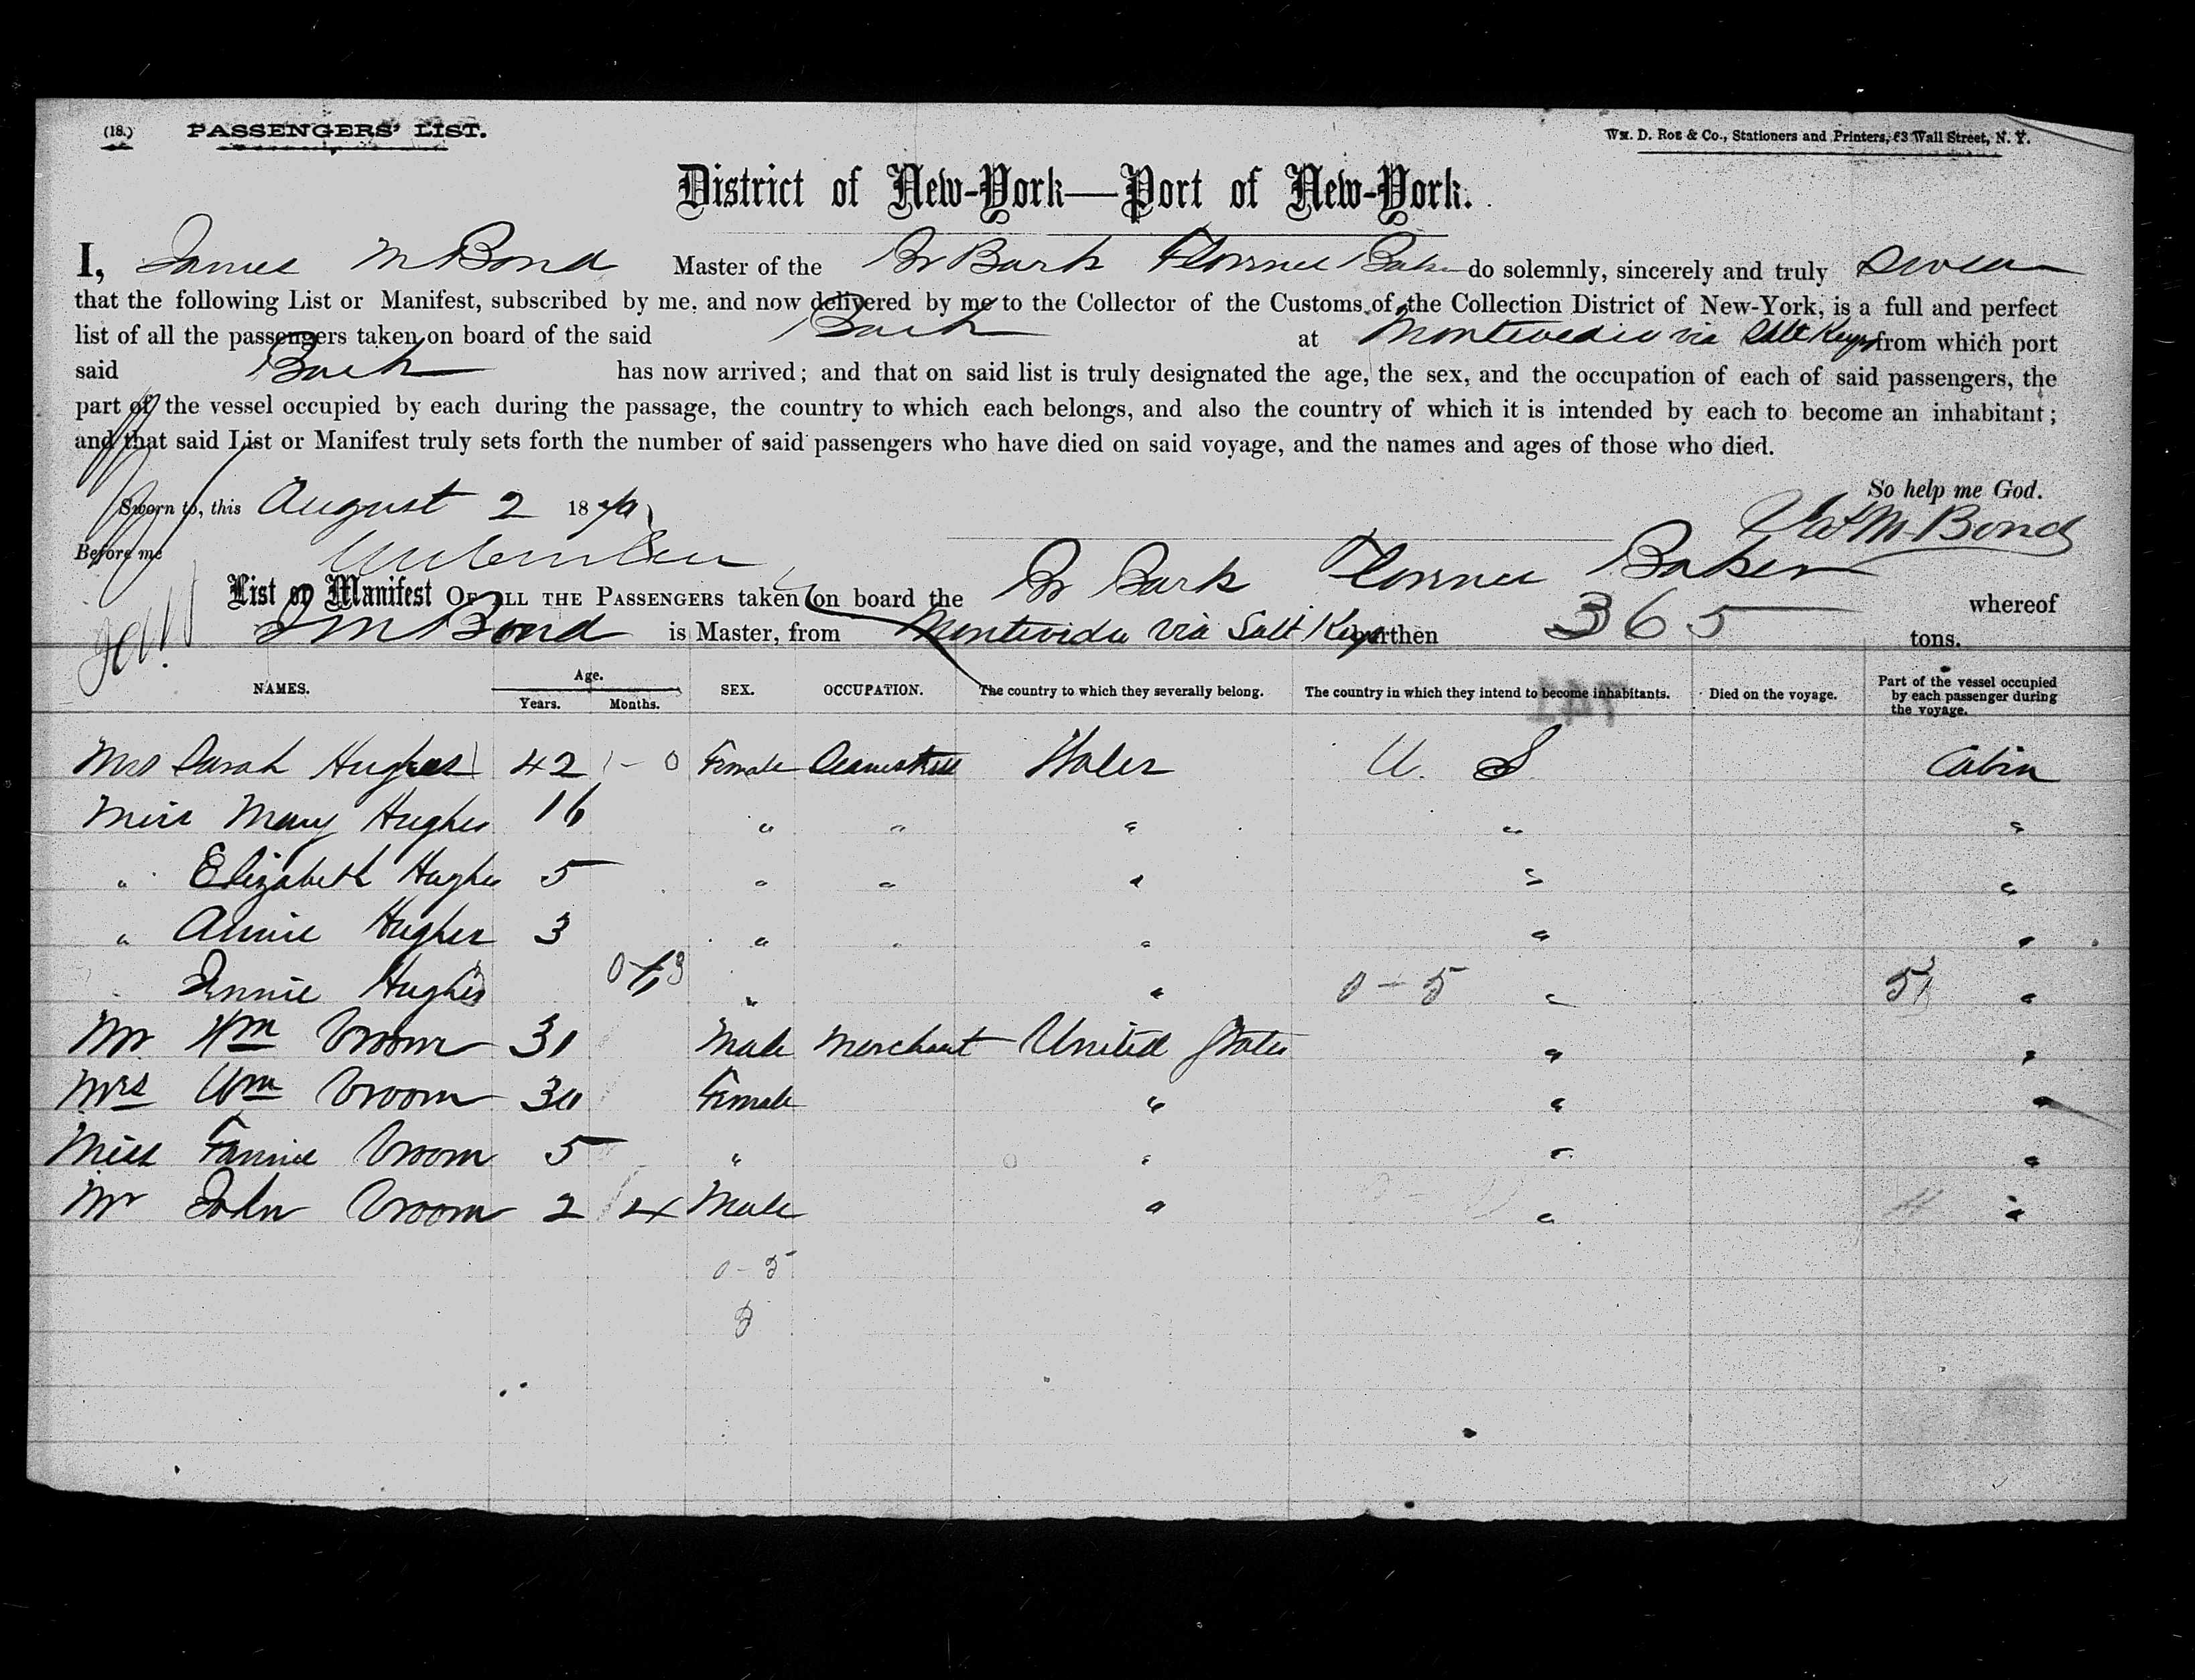 (18.) PASSENGERS' LIST. Wm. D. Roe & Co., Stationers and Printers, 63 Wall Street, N. Y.
District of New-York—Port of New-York.
I, James M Bond Master of the Br Bark Florence Baker do solemnly, sincerely and truly swear
that the following List or Manifest, subscribed by me, and now delivered by me to the Collector of the Customs of the Collection District of New-York, is a full and perfect
list of all the passengers taken on board of the said Bark at Montevedio via Salt Keys from which port
said Bark has now arrived; and that on said list is truly designated the age, the sex, and the occupation of each of said passengers, the
part of the vessel occupied by each during the passage, the country to which each belongs, and also the country of which it is intended by each to become an inhabitant;
and that said List or Manifest truly sets forth the number of said passengers who have died on said voyage, and the names and ages of those who died.
So help me God.
Sworn to, this August 2 18
Jas M Bond
Before me
List or Manifest OF ALL THE PASSENGERS taken on board the Br Bark Florence Baker whereof
J M Bond is Master, from Montevideo via Salt Keys burthen 365 tons.
NAMES. Age. Years. Months. SEX. OCCUPATION. The country to which they severally belong. The country in which they intend to become inhabitants. Died on the voyage. Part of the vessel occupied by each passenger during the voyage.
Mrs Sarah Hughes 42 - 0 Female Wales U. S Cabin
Miss Mary Hughes 16 " " " " "
" Elizabeth Hughes 5 " " " " "
" Annie Hughes 3 " " " " "
Hughes " " 0 - 5 " "
Mr Wm Vroom 31 Male Merchant United States " "
Mrs Wm Vroom 30 Female " " "
Miss Fannie Vroom 5 " " " "
Mr John Vroom 2 4 Male " " "
0 - 5
3